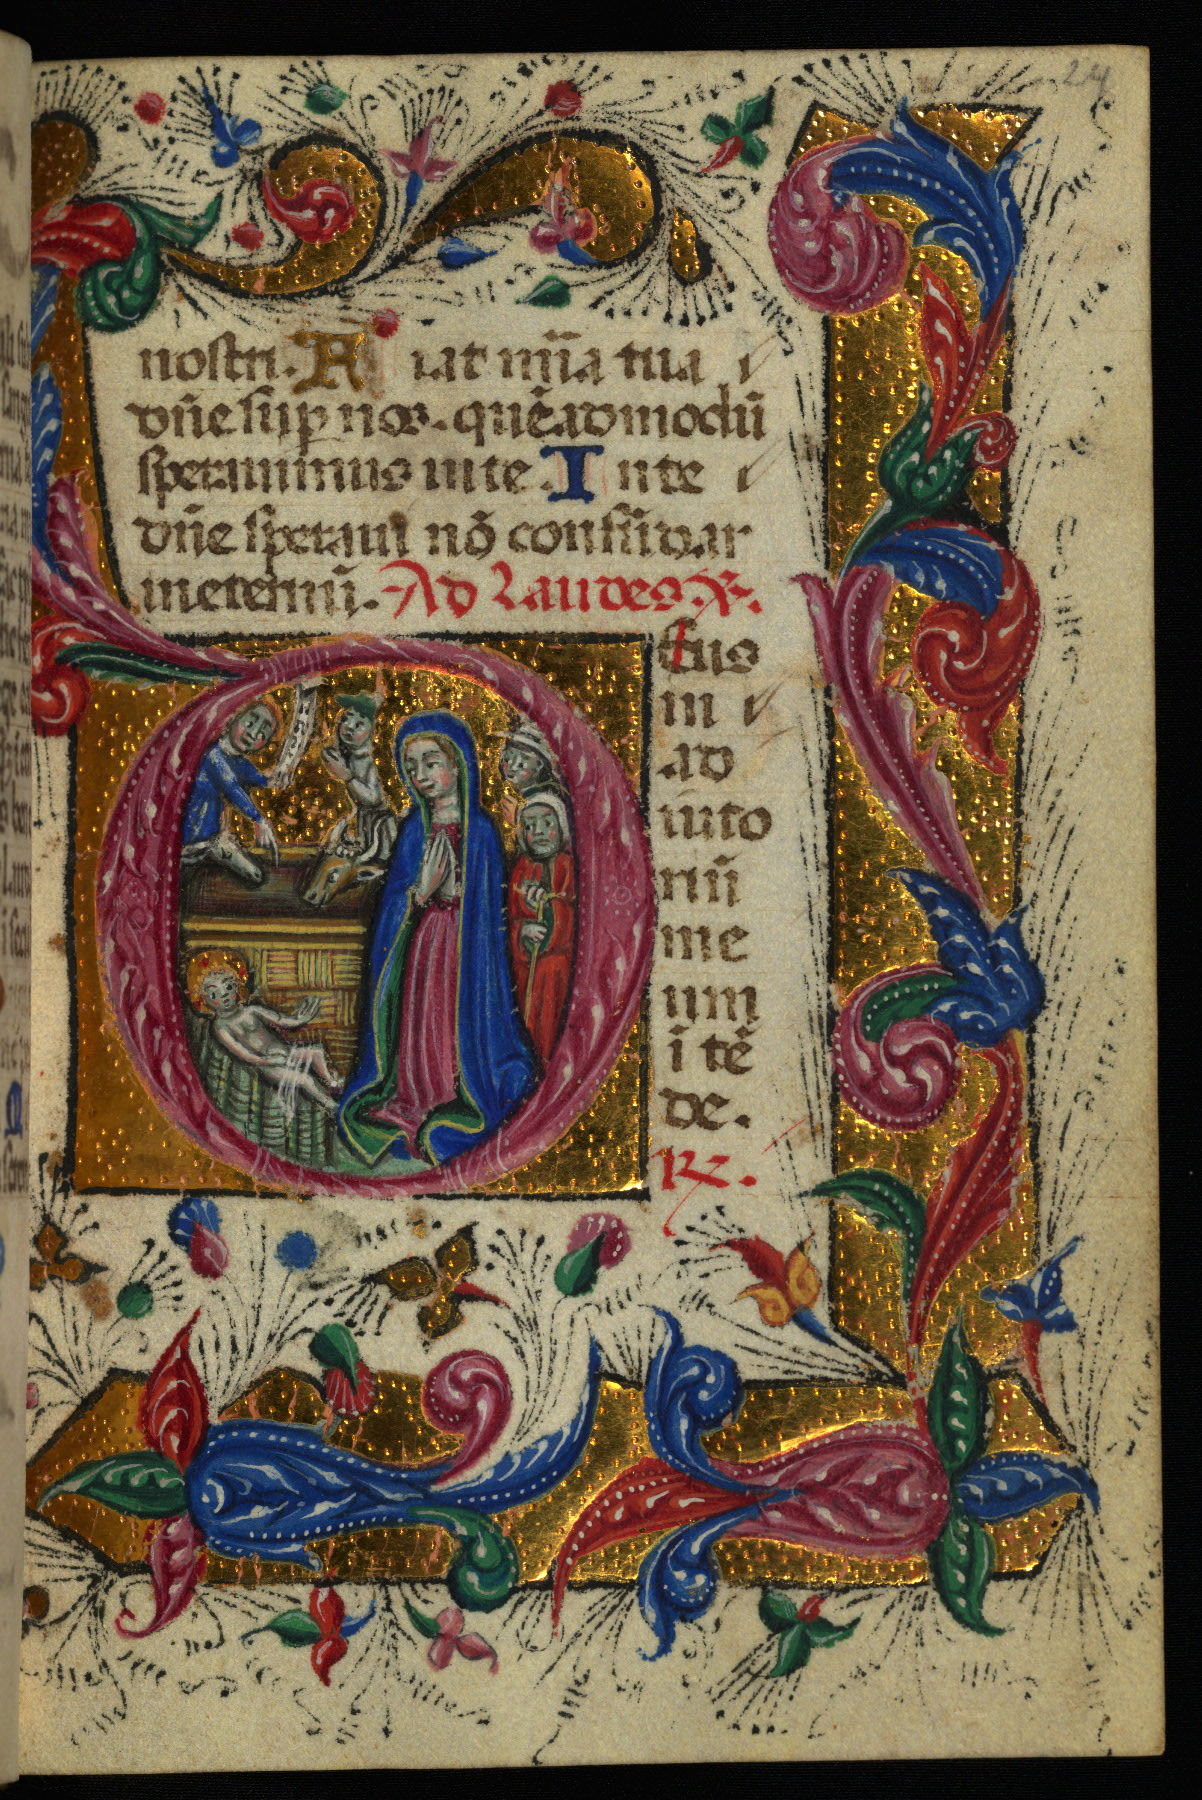 24
nostri. Fiat mīa tua
dn̄e suꝑ nos. quēadmodū
sperauimus in te. In te
dn̄e speraui nō confūdar
in eternū. Ad Laudes. ℣.
Deus
in
ad
iuto
riū
me
um
i tē
de.
℟.